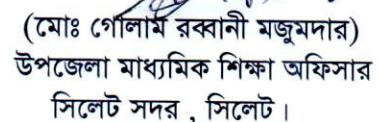 (মোঃ গোলাম রব্বানী মজুমদার)
উপজেলা মাধ্যমিক শিক্ষা অফিসার
সিলেট সদর , সিলেট ।